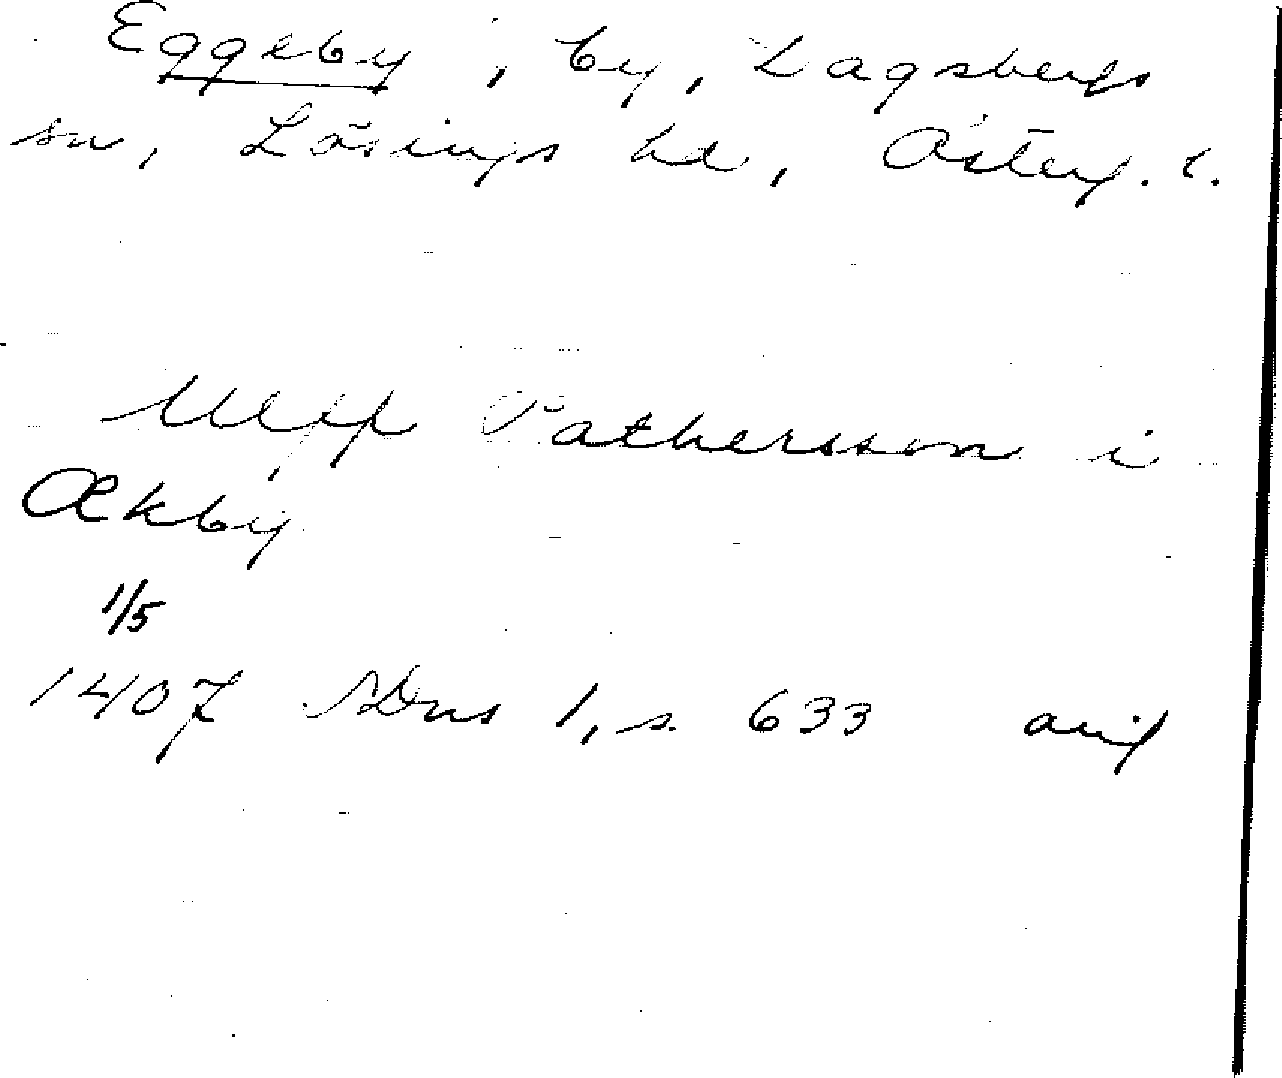 Eggeby, by, Dagsbergs
sn, Lösings hd, Österg. l.
Ulff Vathersson i
Ækby
1/5
1407 SDns 1, s. 633 avif